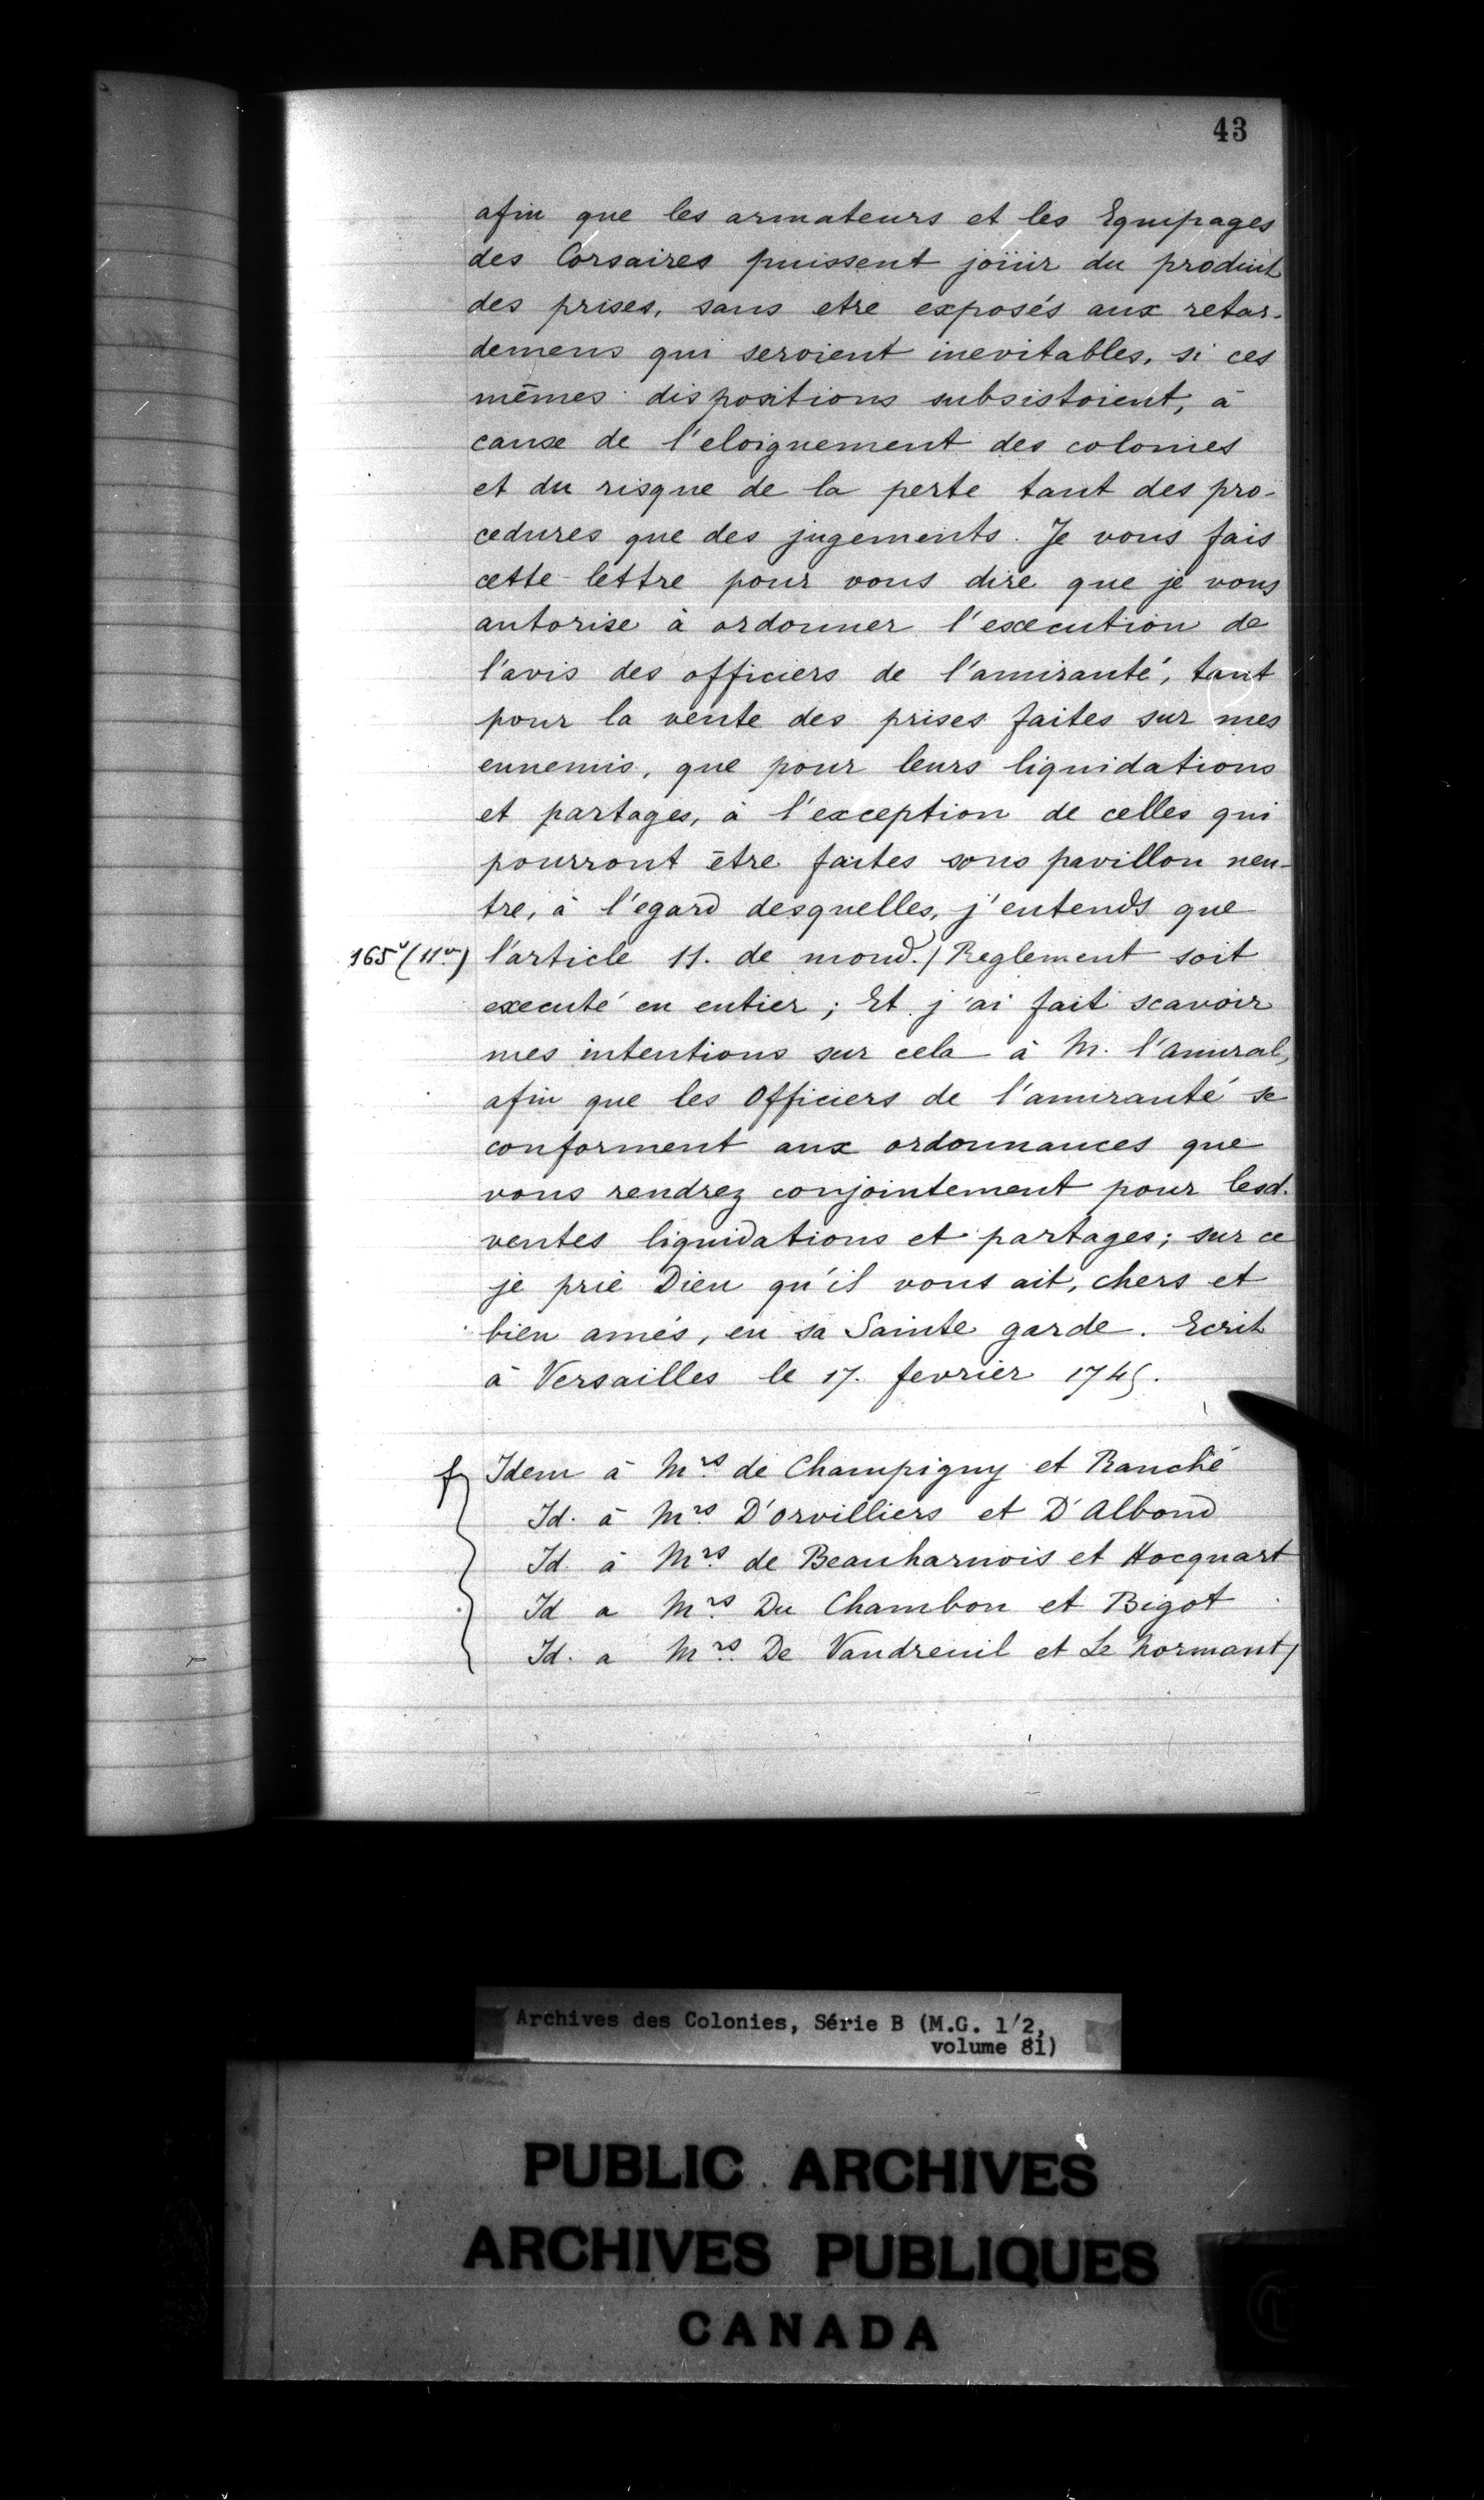 43
afin que les armateurs et les Equipages
des Corsaires puissent joüir du produit
des prises, sans etre exposés aux retar-
demens qui seroient inevitables, si ces
mêmes dispositions subsistoient, à
cause de l'eloignement des colonies
et du risque de la perte tant des pro-
cedures que des jugements. Je vous fais
cette lettre pour vous dire que je vous
autorise à ordonner l'execution de
l'avis des officiers de l'amirauté, tant
pour la vente des prises faites sur mes
ennemis, que pour leurs liquidations
et partages, à l'exception de celles qui
pourront être faites sous pavillon neu-
tre, à l'egard desquelles, j'entends que
165v (11vo) l'article 11. de mond.) Reglement soit
executé en entier; Et j'ai fait scavoir
mes intentions sur cela à M. l'amiral,
afin que les Officiers de l'amirauté se
conforment aux ordonnances que
vous rendrez conjointement pour lesd.
ventes liquidations et partages; sur ce
je prie Dieu qu'il vous ait, chers et
bien amés, en sa Sainte garde. Ecrit
à Versailles le 17. fevrier 1745.
Idem à Mrs de Champigny et Ranché
Id. à Mrs D'orvilliers et D'Albond
Id. à Mrs de Beauharnois et Hocquart
Id a Mrs Du Chambon et Bigot
Id. a Mrs De Vaudreuil et Le Normant/
Archives des Colonies, Série B (M.G. 1/2,
volume 81)
PUBLIC ARCHIVES
ARCHIVES PUBLIQUES
CANADA